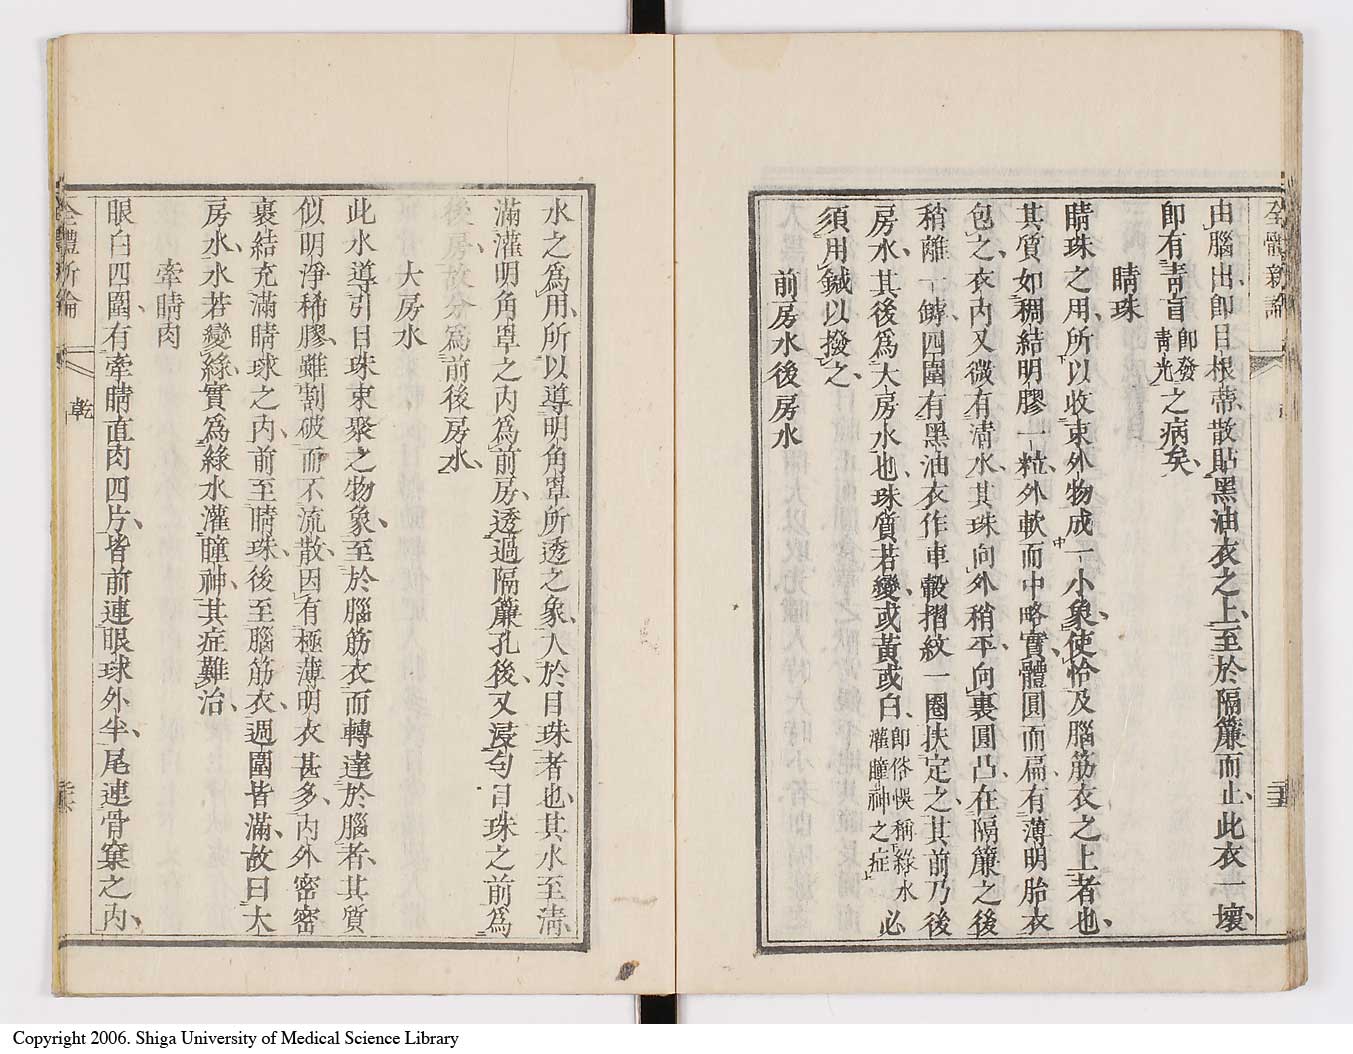 全體新論
由腦出卽目根蒂散貼黑油衣之上至於隔簾而止此衣一壞
卽有靑盲卽發靑光之病矣
睛珠
睛珠之用所以收束外物成一小象使恰及腦筋衣之上者也
其質如稠結明膠一粒外軟而中略實體圓而扁有薄明胎衣
包之衣內又微有清水其珠向外稍平向裏圓凸在隔簾之後
稍離一罅四圍有黑油衣作車轂摺紋一圈扶定之其前乃後
房水其後爲大房水也珠質若變或黃或白卽俗悞稱綠水灌瞳神之症必
須用鍼以撥之
前房水後房水
水之爲用所以導明角罩所透之象入於目珠者也其水至淸
滿灌明角罩之內爲前房透過隔簾孔後又浸勻目珠之前爲
後房故分爲前後房水
大房水
此水導引目珠束聚之物象至於腦筋衣而轉達於腦者其質
似明淨稀膠雖割破而不流散因有極薄明衣甚多內外密密
裹結充滿睛球之內前至睛珠後至腦筋衣週圍皆滿故曰大
房水水若變綠實爲綠水灌瞳神其症難治
牽睛肉
眼白四圍有牽睛直肉四片皆前連眼球外半尾連骨窠之內
全體新論
乾
Copyright 2006. Shiga University of Medical Science Library